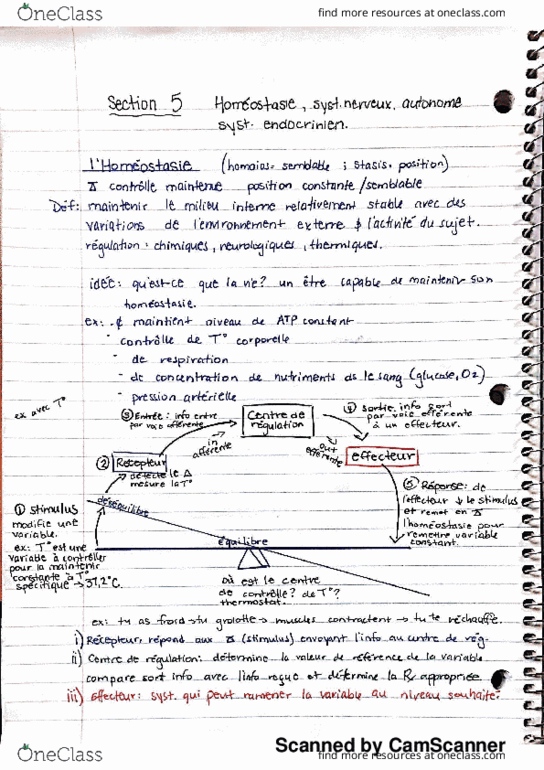 OneClass
find more resources at oneclass.com
Section 5 Homéostasie, syst. nerveux, autonome
syst. endocrinien.
l'Homéostasie (homoios= semblable ; stasis= position)
contrôlle maintenue position constante/semblable
Déf: maintenir le milieu interne relativement stable avec des
variations de l'environnement externe & l'activité du sujet.
régulation : chimiques, neurologiques, thermiques.
idée: qu'est-ce que la vie? un être capable de maintenir son
homéostasie.
ex: maintient niveau de ATP constant
- contrôlle de T° corporelle
- de respiration
- de concentration de nutriments ds le sang (glucose, O2)
- pression artérielle
ex avec T°
③ Entrée: info entre
par voie afférente
Centre de
régulation
④ Sortie: info sort
par voie efférente
à un effecteur.
in
afférente
out
efférente
② Récepteur
détecte le Δ
mesure la T°
effecteur
⑤ Réponse: de
l'effecteur ↓ le stimulus
et remet en
l'homéostasie pour
remettre variable
constant.
① stimulus
modifie une
variable.
ex: T° est une
variable à contrôller
pour la maintenir
constante à T°
spécifique → 37,2°C.
déséquilibre
équilibre
où est le centre
de contrôlle? de T°?
thermostat.
ex: tu as froid → tu grelotte → muscles contractent → tu te réchauffe.
i) Récepteur: répond aux Δ (stimulus) envoyant l'info au centre de rég.
ii) Centre de régulation: détermine la valeur de référence de la variable
compare sort info avec l'info reçue et détermine la Rx appropriée
iii) Effecteur: syst. qui peut ramener la variable au niveau souhaité.
Scanned by CamScanner
OneClass
find more resources at oneclass.com